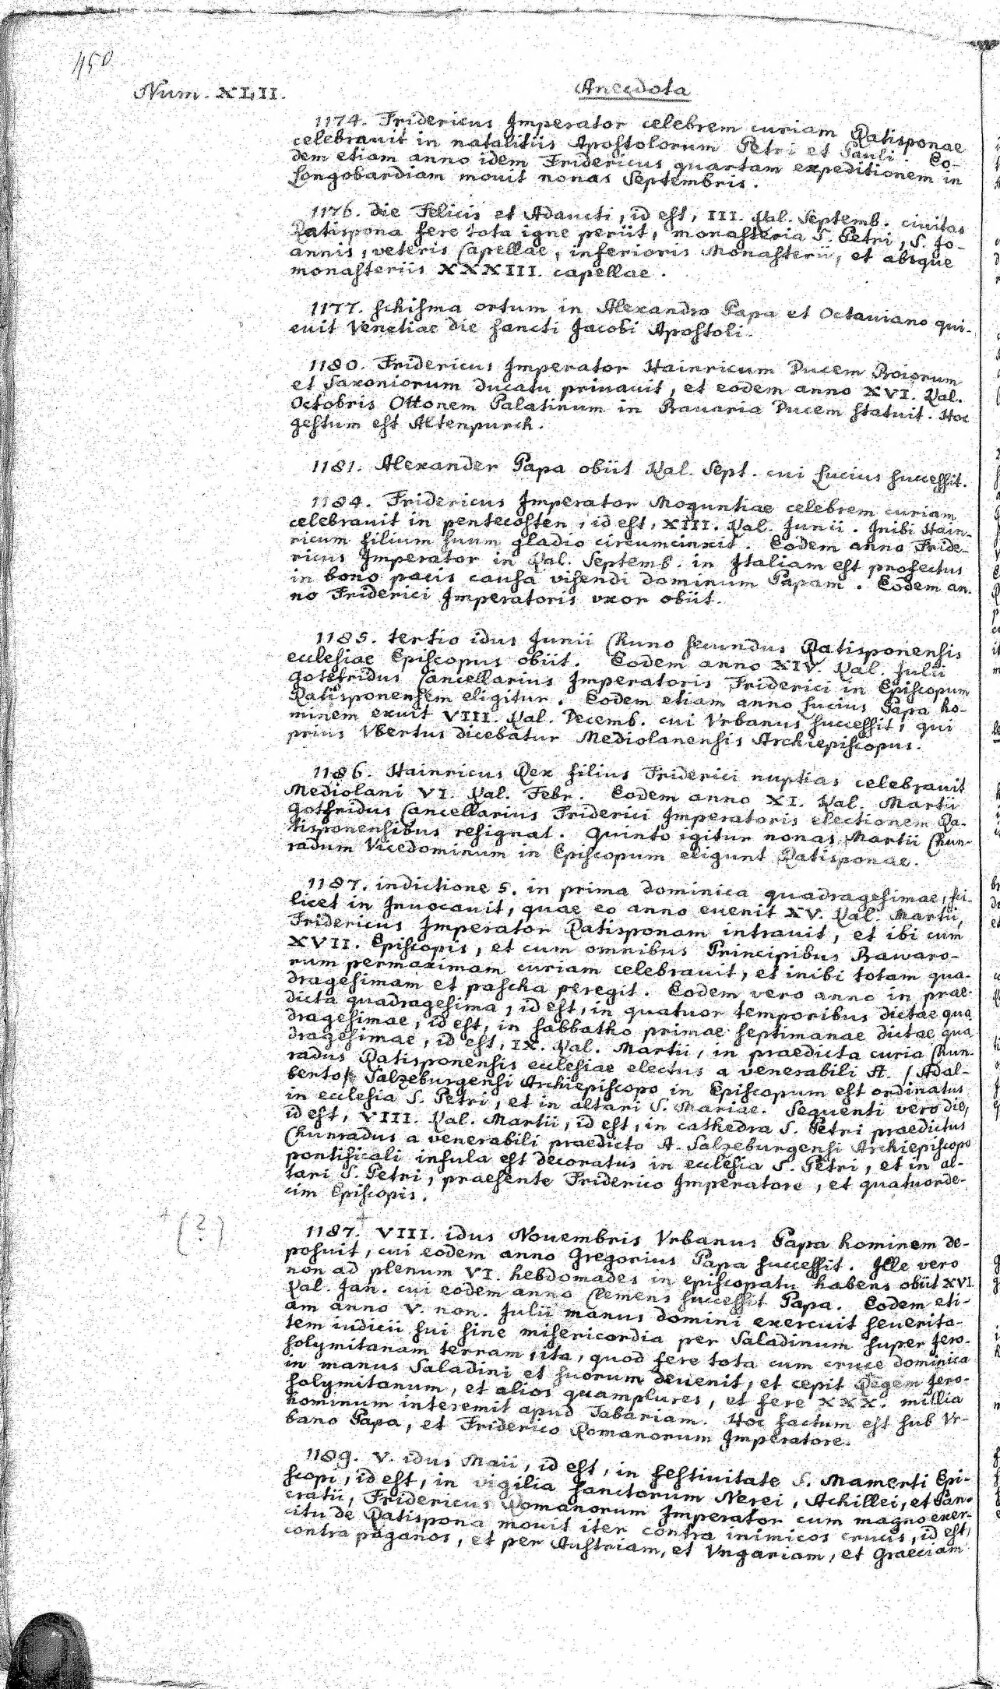 450
Num. XLII.
Anecdota
1174. Fridericus Imperator celebrem curiam Ratisponae
celebrauit in natalitiis Apostolorum Petri et Pauli. Eo-
dem etiam anno idem Fridericus quartam expeditionem in
Longobardiam mouit nonas Septembris.
1176. die Felicis et Adaucti, id est, III. Kal. Septemb. ciuitas
Ratispona fere tota igne periit, monasteria S. Petri, S. Jo-
annis, veteris Capellae, inferioris Monasterii, et absque
monasteriis XXXIII. capellae.
1177. schisma ortum in Alexandro Papa et Octauiano qui-
euit Venetiae die sancti Jacobi Apostoli.
1180. Fridericus Imperator Hainricum Ducem Boiorum
et Saxoniorum ducatu priuauit, et eodem anno XVI. Kal.
Octobris Ottonem Palatinum in Bauaria Ducem statuit. Hoc
gestum est Altenpurch.
1181. Alexander Papa obiit Kal. Sept. cui Lucius successit.
1184. Fridericus Imperator Moguntiae celebrem curiam
celebrauit in pentecosten, id est, XIII. Kal. Junii. Inibi Hain-
ricum filium suum gladio circumcinxit. Eodem anno Fride-
ricus Imperator in Kal. Septemb. in Italiam est profectus
in bono pacis causa visendi dominum Papam. Eodem an-
no Friderici Imperatoris vxor obiit.
1185. tertio idus Junii Chuno secundus Ratisponensis
ecclesiae Episcopus obiit. Eodem anno XIV. Kal. Julii
gottfridus Cancellarius Imperatoris Friderici in Episcopum
Ratisponensem eligitur. Eodem etiam anno Lucius Papa ho-
minem exuit VIII. Kal. Decemb. cui Vrbanus successit, qui
prius Vbertus dicebatur Mediolanensis Archiepiscopus.
1186. Hainricus Rex filius Friderici nuptias celebrauit
Mediolani VI. Kal. Febr. Eodem anno XI. Kal. Martii
gothfridus Cancellarius Friderici Imperatoris electionem Ra-
tisponensibus resignat. Quinto igitur nonas Martii Chun-
radum Vicedominum in Episcopum eligunt Ratisponae.
1187. indictione 5. in prima dominica quadragesimae, sci-
licet in Inuocauit, quae eo anno euenit XV. Kal. Martii,
Fridericus Imperator Ratisponam intrauit, et ibi cum
XVII. Episcopis, et cum omnibus Principibus Bawaro-
rum permaximam curiam celebrauit, et inibi totam qua-
dragesimam et pascha peregit. Eodem vero anno in prae-
dicta quadragesima, id est, in quatuor temporibus dictae qua-
dragesimae, id est, in sabbatho primae septimanae dictae qua-
dragesimae, id est, IX. Kal. Martii, in praedicta curia Chun-
radus Ratisponensis ecclesiae electus a venerabili A. (Adal-
berto) Salzeburgensi Archiepiscopo in Episcopum est ordinatus
in ecclesia S. Petri, et in altari S. Mariae. Sequenti vero die,
id est, VIII. Kal. Martii, id est, in cathedra S. Petri praedictus
Chunradus a venerabili praedicto A. Salzeburgensi Archiepiscopo
pontificali insula est decoratus in ecclesia S. Petri, et in al-
tari S. Petri, praesente Friderico Imperatore, et quatuorde-
cim Episcopis.
+ (?)
1187. + VIII. idus Nouembris Vrbanus Papa hominem de-
posuit, cui eodem anno Gregorius Papa successit. Ille vero
non ad plenum VI. hebdomades in episcopatu habens obiit XVI.
Kal. Jan. cui eodem anno Clemens successit Papa. Eodem eti-
am anno V. non. Julii manus domini exercuit seuerita-
tem iudicii sui sine misericordia per Saladinum super Jero-
solymitanam terram, ita, quod fere tota cum cruce dominica
in manus Saladini et suorum deuenit, et cepit Regem Jero-
solymitanum, et alios quamplures, et fere XXX. millia
hominum interemit apud Tabariam. Hoc factum est sub Vr-
bano Papa, et Friderico Romanorum Imperatore.
1189. V. idus Maii, id est, in festiuitate S. Mamerti Epi-
scopi, id est, in vigilia sanctorum Nerei, Achillei, et Pan-
cratii, Fridericus Romanorum Imperator cum magno exer-
citu de Ratispona mouit iter contra inimicos crucis, id est,
contra paganos, et per Austriam, et Vngariam, et Graeciam